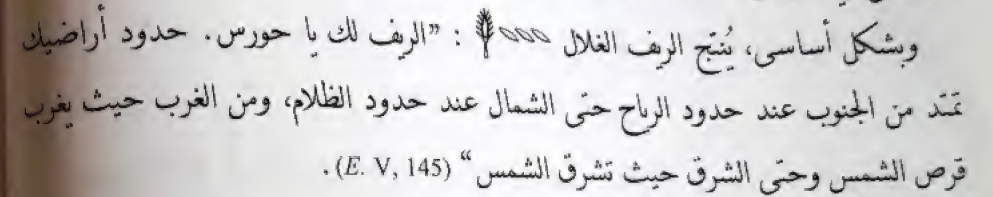 وبشكل أساسى، يُنتج الريف الغلال : "الريف لك يا حورس. حدود أراضيك
تمتد من الجنوب عند حدود الرياح حتى الشمال عند حدود الظلام، ومن الغرب حيث يغرب
قرص الشمس وحتى الشرق حيث تشرق الشمس" (E. V, 145).